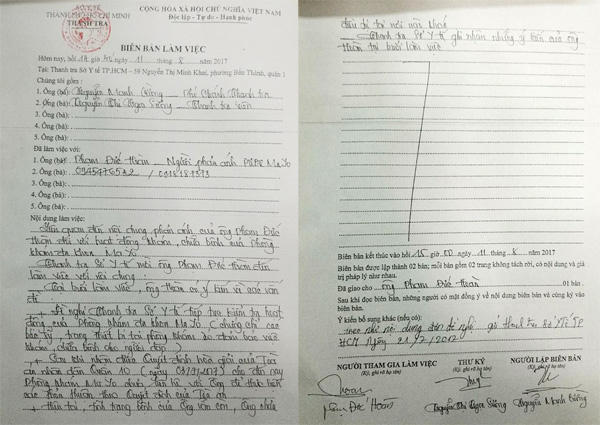 SỞ Y TẾ
THÀNH PHỐ HỒ CHÍ MINH
THANH TRA
CỘNG HÒA XÃ HỘI CHỦ NGHĨA VIỆT NAM
Độc lập - Tự do - Hạnh phúc
BIÊN BẢN LÀM VIỆC
Hôm nay, hồi giờ ngày 11 tháng 8 năm 2017
Tại: Thanh tra Sở Y tế TP.HCM – 59 Nguyễn Thị Minh Khai, phường Bến Thành, quận 1
Chúng tôi gồm:
1. Ông (bà): Nguyễn Mạnh Cường - Phó Chánh Thanh tra
2. Ông (bà): Nguyễn Thị Ngọc Sương - Thanh tra viên
3. Ông (bà):
4. Ông (bà):
5. Ông (bà):
Đã làm việc với:
1. Ông (bà): Phạm Đức - Người phản ánh PKĐK Mayo
2. Ông (bà):
3. Ông (bà):
4. Ông (bà):
5. Ông (bà):
Nội dung làm việc:
Liên quan đến nội dung phản ánh của ông Phạm Đức
đối với hoạt động khám, chữa bệnh của Phòng
khám đa khoa Mayo
Thanh tra Sở Y tế mời ông Phạm Đức đến
làm việc với nội dung:
Tại buổi làm việc, ông có ý kiến về các vấn
đề:
+ Đề nghị Thanh tra Sở Y tế tiếp tục kiểm tra hoạt
động của Phòng khám đa khoa Mayo, chứng chỉ các
bác sỹ, trang thiết bị tại phòng khám đảm bảo việc
khám, chữa bệnh cho người
+ Sau khi nhận được Quyết định hòa giải của Tòa
án nhân dân Quận 10 cho đến nay
Phòng khám Mayo chưa liên hệ với ông để thực hiện
các thỏa thuận theo quyết định của Tòa án
+ Hiện tại, tình trạng bệnh của ông vẫn còn, ông phải
điều trị tại nơi khác
Thanh tra Sở Y tế ghi nhận những ý kiến của ông
tại buổi làm việc
Biên bản kết thúc vào hồi 15 giờ 00 ngày 11 tháng 8 năm 2017
Biên bản được lập thành 02 bản; mỗi bản gồm 02 trang không tách rời, có nội dung và giá
trị pháp lý như nhau.
Đã giao cho ông Phạm Đức 01 bản.
Sau khi đọc biên bản, những người có mặt đồng ý về nội dung biên bản và cùng ký vào
biên bản.
Ý kiến bổ sung khác (nếu có):
theo như nội dung đơn đề nghị gửi thanh tra Sở Y Tế TP
HCM Ngày
NGƯỜI THAM GIA LÀM VIỆC
(Ký, ghi rõ họ tên)
THƯ KÝ
(Ký, ghi rõ họ tên)
NGƯỜI LẬP BIÊN BẢN
(Ký, ghi rõ họ tên)
Phạm Đức
Nguyễn Thị Ngọc Sương
Nguyễn Mạnh Cường